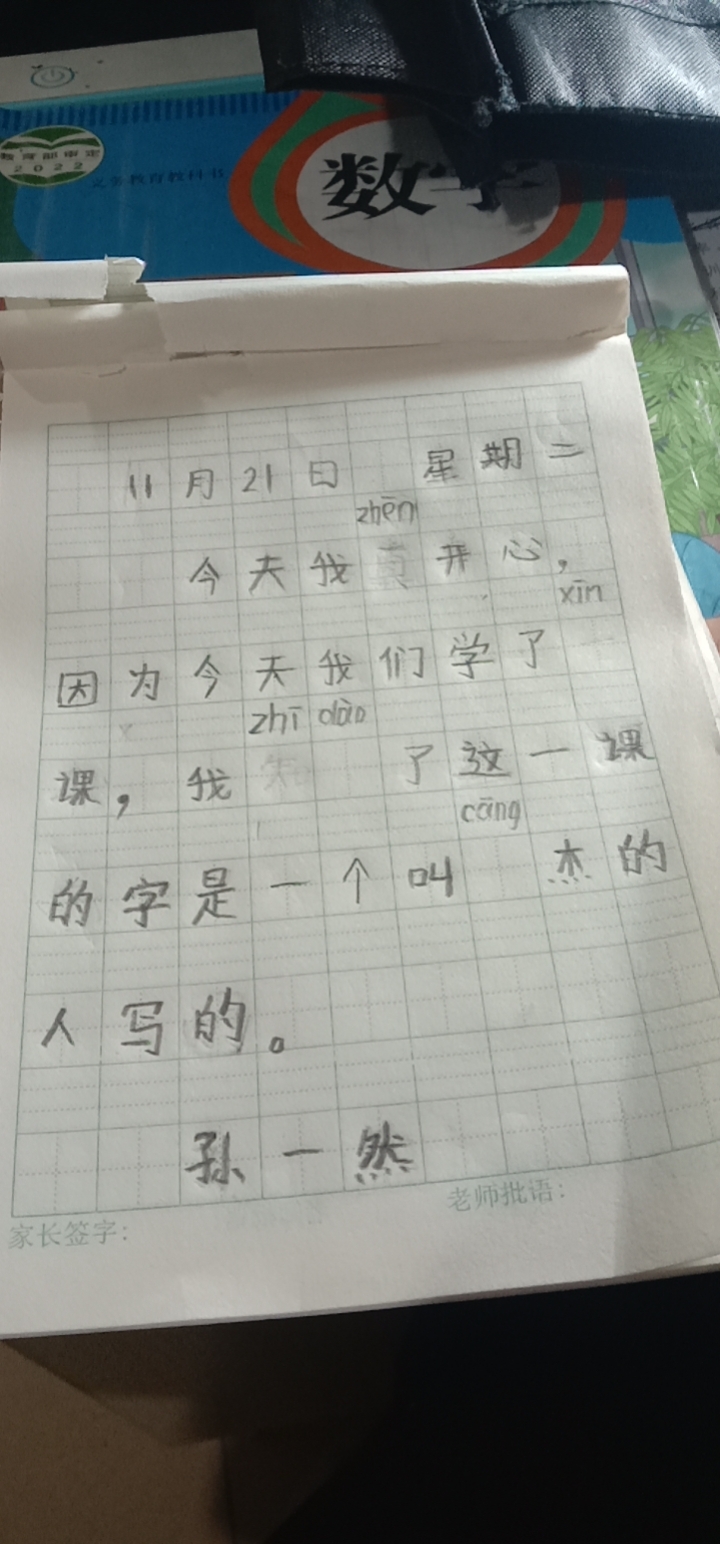 教育部审定
2022
义务教育教科书
数学
11月21日 星期二
zhēn
今天我真开心，
xīn
因为今天我们学了
zhī dào
课，我知 了这一课
cāng
的字是一个叫 杰的
人写的。
孙一然
老师批语：
家长签字：